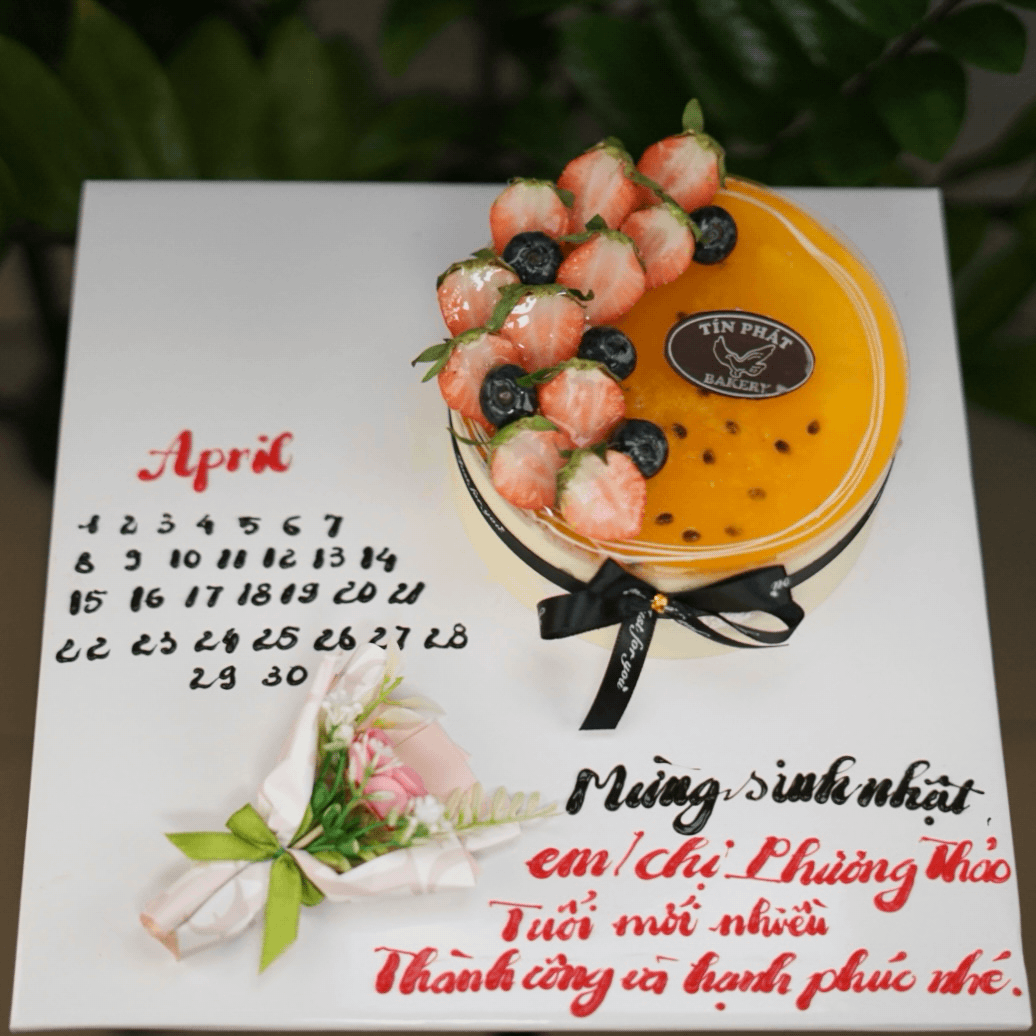 TÍN PHÁT
BAKERY
April
1 2 3 4 5 6 7
8 9 10 11 12 13 14
15 16 17 18 19 20 21
22 23 24 25 26 27 28
29 30
Just for you
Mừng sinh nhật
em/chị Phương Thảo
Tuổi mới nhiều
Thành công và hạnh phúc nhé.